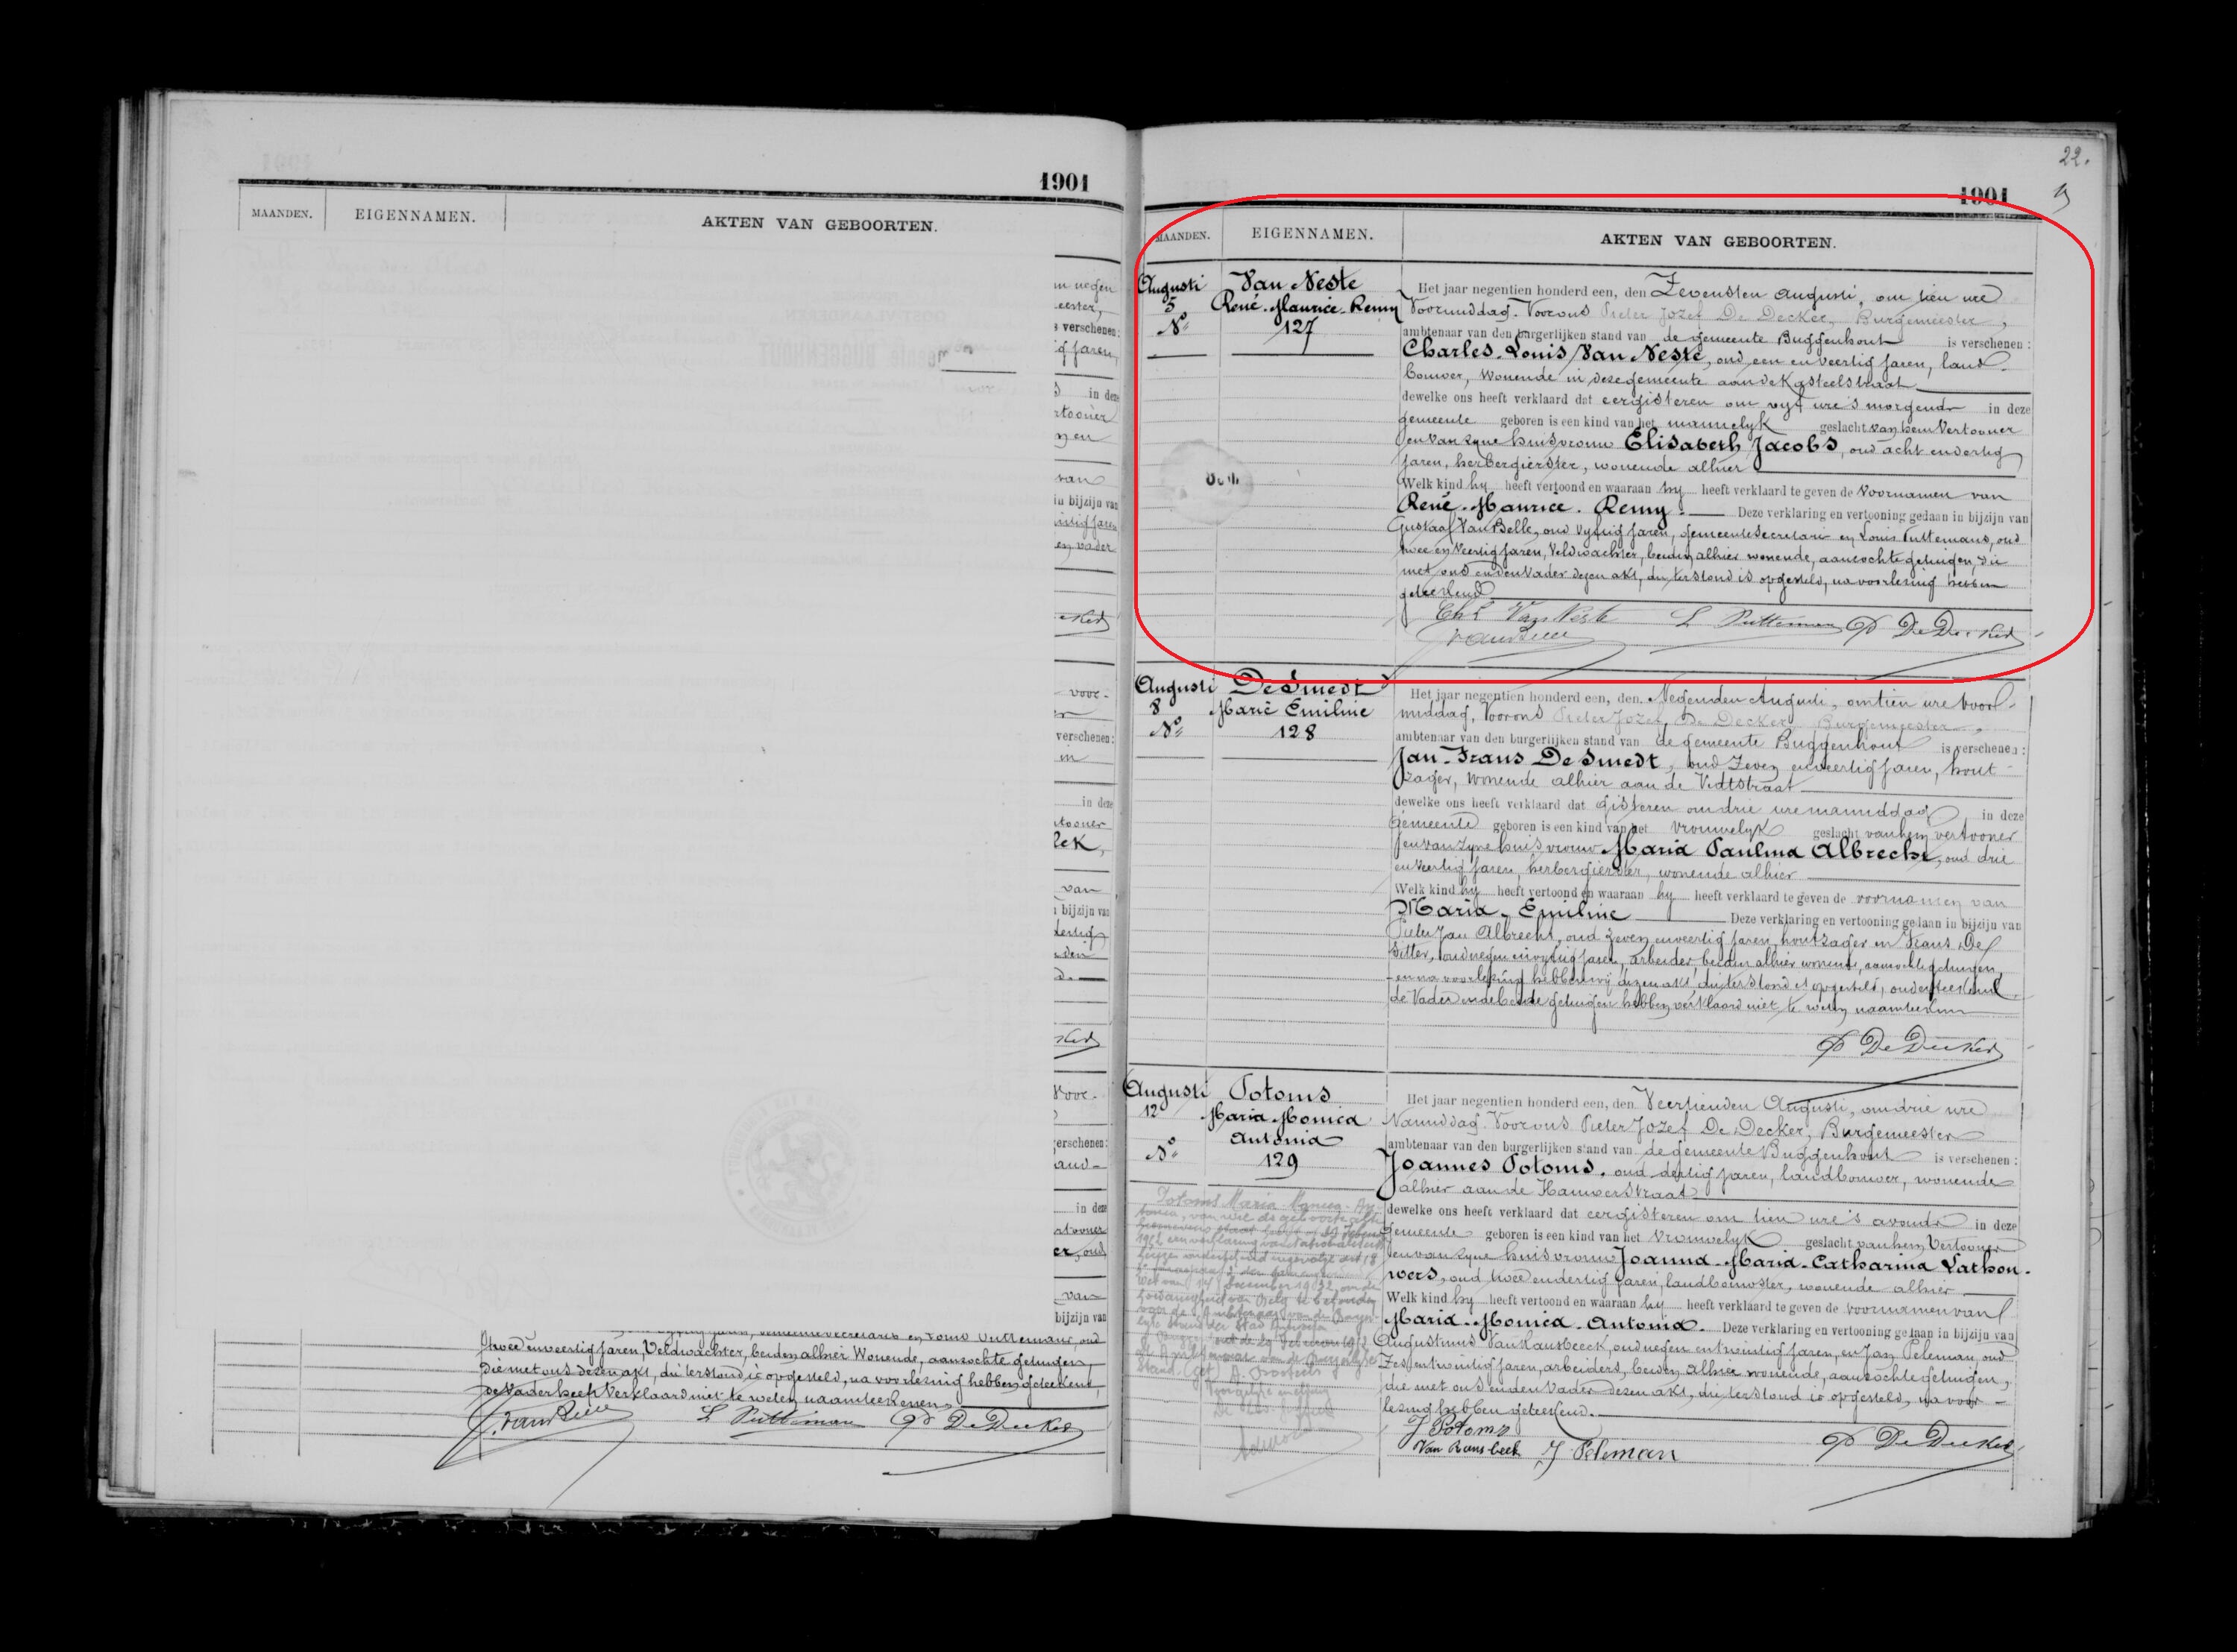 1901
MAANDEN. EIGENNAMEN. AKTEN VAN GEBOORTEN.
in negen
eester,
verschenen:
ig jaren,
in deze
rtooner
en
van
in bijzijn van
en vader
eKer
voor-
verschenen:
in
in deze
rtooner
van
bijzijn van
Voor-
verschenen:
land-
in deze
rtooner
er, oud
van
bijzijn van
twee en veertig jaren, Veldwachter, beiden alhier Wonende, aanzochte getuigen,
die met ons dezen akt, die terstond is opgesteld, na voorlezing hebben geteekend,
de Vader heeft Verklaard niet te weten naamteekenen.
VanBelle L Puttemans P DeDecker
22.
1901
MAANDEN. EIGENNAMEN. AKTEN VAN GEBOORTEN.
Augusti Van Neste
5 René-Maurice-Remy
No 127
Het jaar negentien honderd een, den Zevensten Augusti, om tien ure
Voormiddag. Voor ons Pieter Jozef De Decker, Burgemeester,
ambtenaar van den burgerlijken stand van de gemeente Buggenhout is verschenen:
Charles-Louis Van Neste, oud een en veertig jaren, land-
bouwer, wonende in deze gemeente aan de Kasteelstraat
dewelke ons heeft verklaard dat eergisteren om vyf ure 's morgends in deze
gemeente geboren is een kind van het mannelyk geslacht van hem Vertooner
en van zyne huisvrouw Elisabeth Jacobs, oud acht en dertig
jaren, herbergierster, wonende alhier
Welk kind hy heeft vertoond en waaraan hy heeft verklaard te geven de Voornamen van
René-Maurice-Remy. Deze verklaring en vertooning gedaan in bijzijn van
Gustaaf Van Belle, oud vyftig jaren, gemeentesecretaris en Louis Puttemans, oud
twee en Veertig jaren, Veldwachter, beiden alhier wonende, aanzochte getuigen, die
met ons en den Vader dezen akt, die terstond is opgesteld, na voorlezing hebben
geteekend.
Chs Van Neste L Puttemans P DeDecker
VanBelle
Augusti De Smedt
8 Marie Emilnie
No 128
Het jaar negentien honderd een, den Negenden Augusti, om tien ure voor-
middag, Voor ons Pieter Jozef De Decker, Burgemeester,
ambtenaar van den burgerlijken stand van de gemeente Buggenhout is verschenen:
Jan-Frans De Smedt, oud Zeven en veertig jaren, hout-
zager, wonende alhier aan de Vidtstraat
dewelke ons heeft verklaard dat gisteren om drie ure namiddag in deze
gemeente geboren is een kind van het vrouwelyk geslacht van hem vertooner
en van zyne huisvrouw Maria Paulina Albrecht, oud drie
en veertig jaren, herbergierster, wonende alhier
Welk kind hy heeft vertoond en waaraan hy heeft verklaard te geven de voornamen van
Maria-Emilnie Deze verklaring en vertooning gedaan in bijzijn van
Pieter Jan Albrecht, oud zeven en veertig jaren, houtzager en Frans De
Ditter, oud negen en vyftig jaren, arbeider beiden alhier wonende, aanzochte getuigen,
en na voorlezing hebben wij dezen akt, die terstond is opgesteld, onderteekend.
de Vader en de beide getuigen hebben verklaard niet te weten naamteekenen
P DeDecker
Augusti Potoms
12 Maria-Monica
Antonia
No 129
Het jaar negentien honderd een, den Veertienden Augusti, om drie ure
Namiddag. Voor ons Pieter Jozef De Decker, Burgemeester
ambtenaar van den burgerlijken stand van de gemeente Buggenhout is verschenen:
Joannes Potoms, oud dertig jaren, landbouwer, wonende
alhier aan de Hauwerstraat
dewelke ons heeft verklaard dat eergisteren om tien ure 's avonds in deze
gemeente geboren is een kind van het vrouwelyk geslacht van hem Vertooner
en van zyne huisvrouw Joanna-Maria-Catharina Lathou-
wers, oud twee en dertig jaren, landbouwster, wonende alhier
Welk kind hy heeft vertoond en waaraan hy heeft verklaard te geven de voornamen van
Maria-Monica-Antonia. Deze verklaring en vertooning gedaan in bijzijn van
Augustinus Van Ransbeeck, oud negen en twintig jaren, en Jan Peleman, oud
Zes en twintig jaren, arbeiders, beiden alhier wonende, aanzochte getuigen,
die met ons en den Vader dezen akt, die terstond is opgesteld, na voor-
lezing hebben geteekend.
J Potoms
Van Ransbeek J Peleman P DeDecker
Potoms Maria-Monica-An-
tonia, van wie de geboorteakte